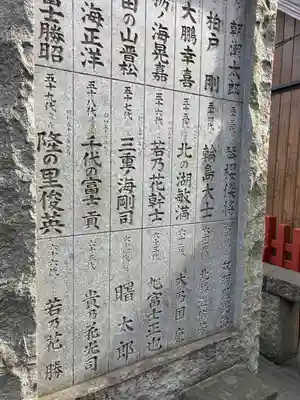 朝潮太郎
柏戸 剛
大鵬幸喜
ノ海晃嘉
田の山晋松
海正洋
富士勝昭
五十三代 琴櫻傑將
五十四代 輪島大士
五十五代 北の湖敏満
五十六代 若乃花幹士
五十七代 三重ノ海剛司
五十八代 千代の富士 貢
五十九代 隆の里俊英
六十一代 北勝海信芳
六十二代 大乃国 康
六十三代 旭富士正也
六十四代 曙 太郎
六十五代 貴乃花光司
六十六代 若乃花 勝